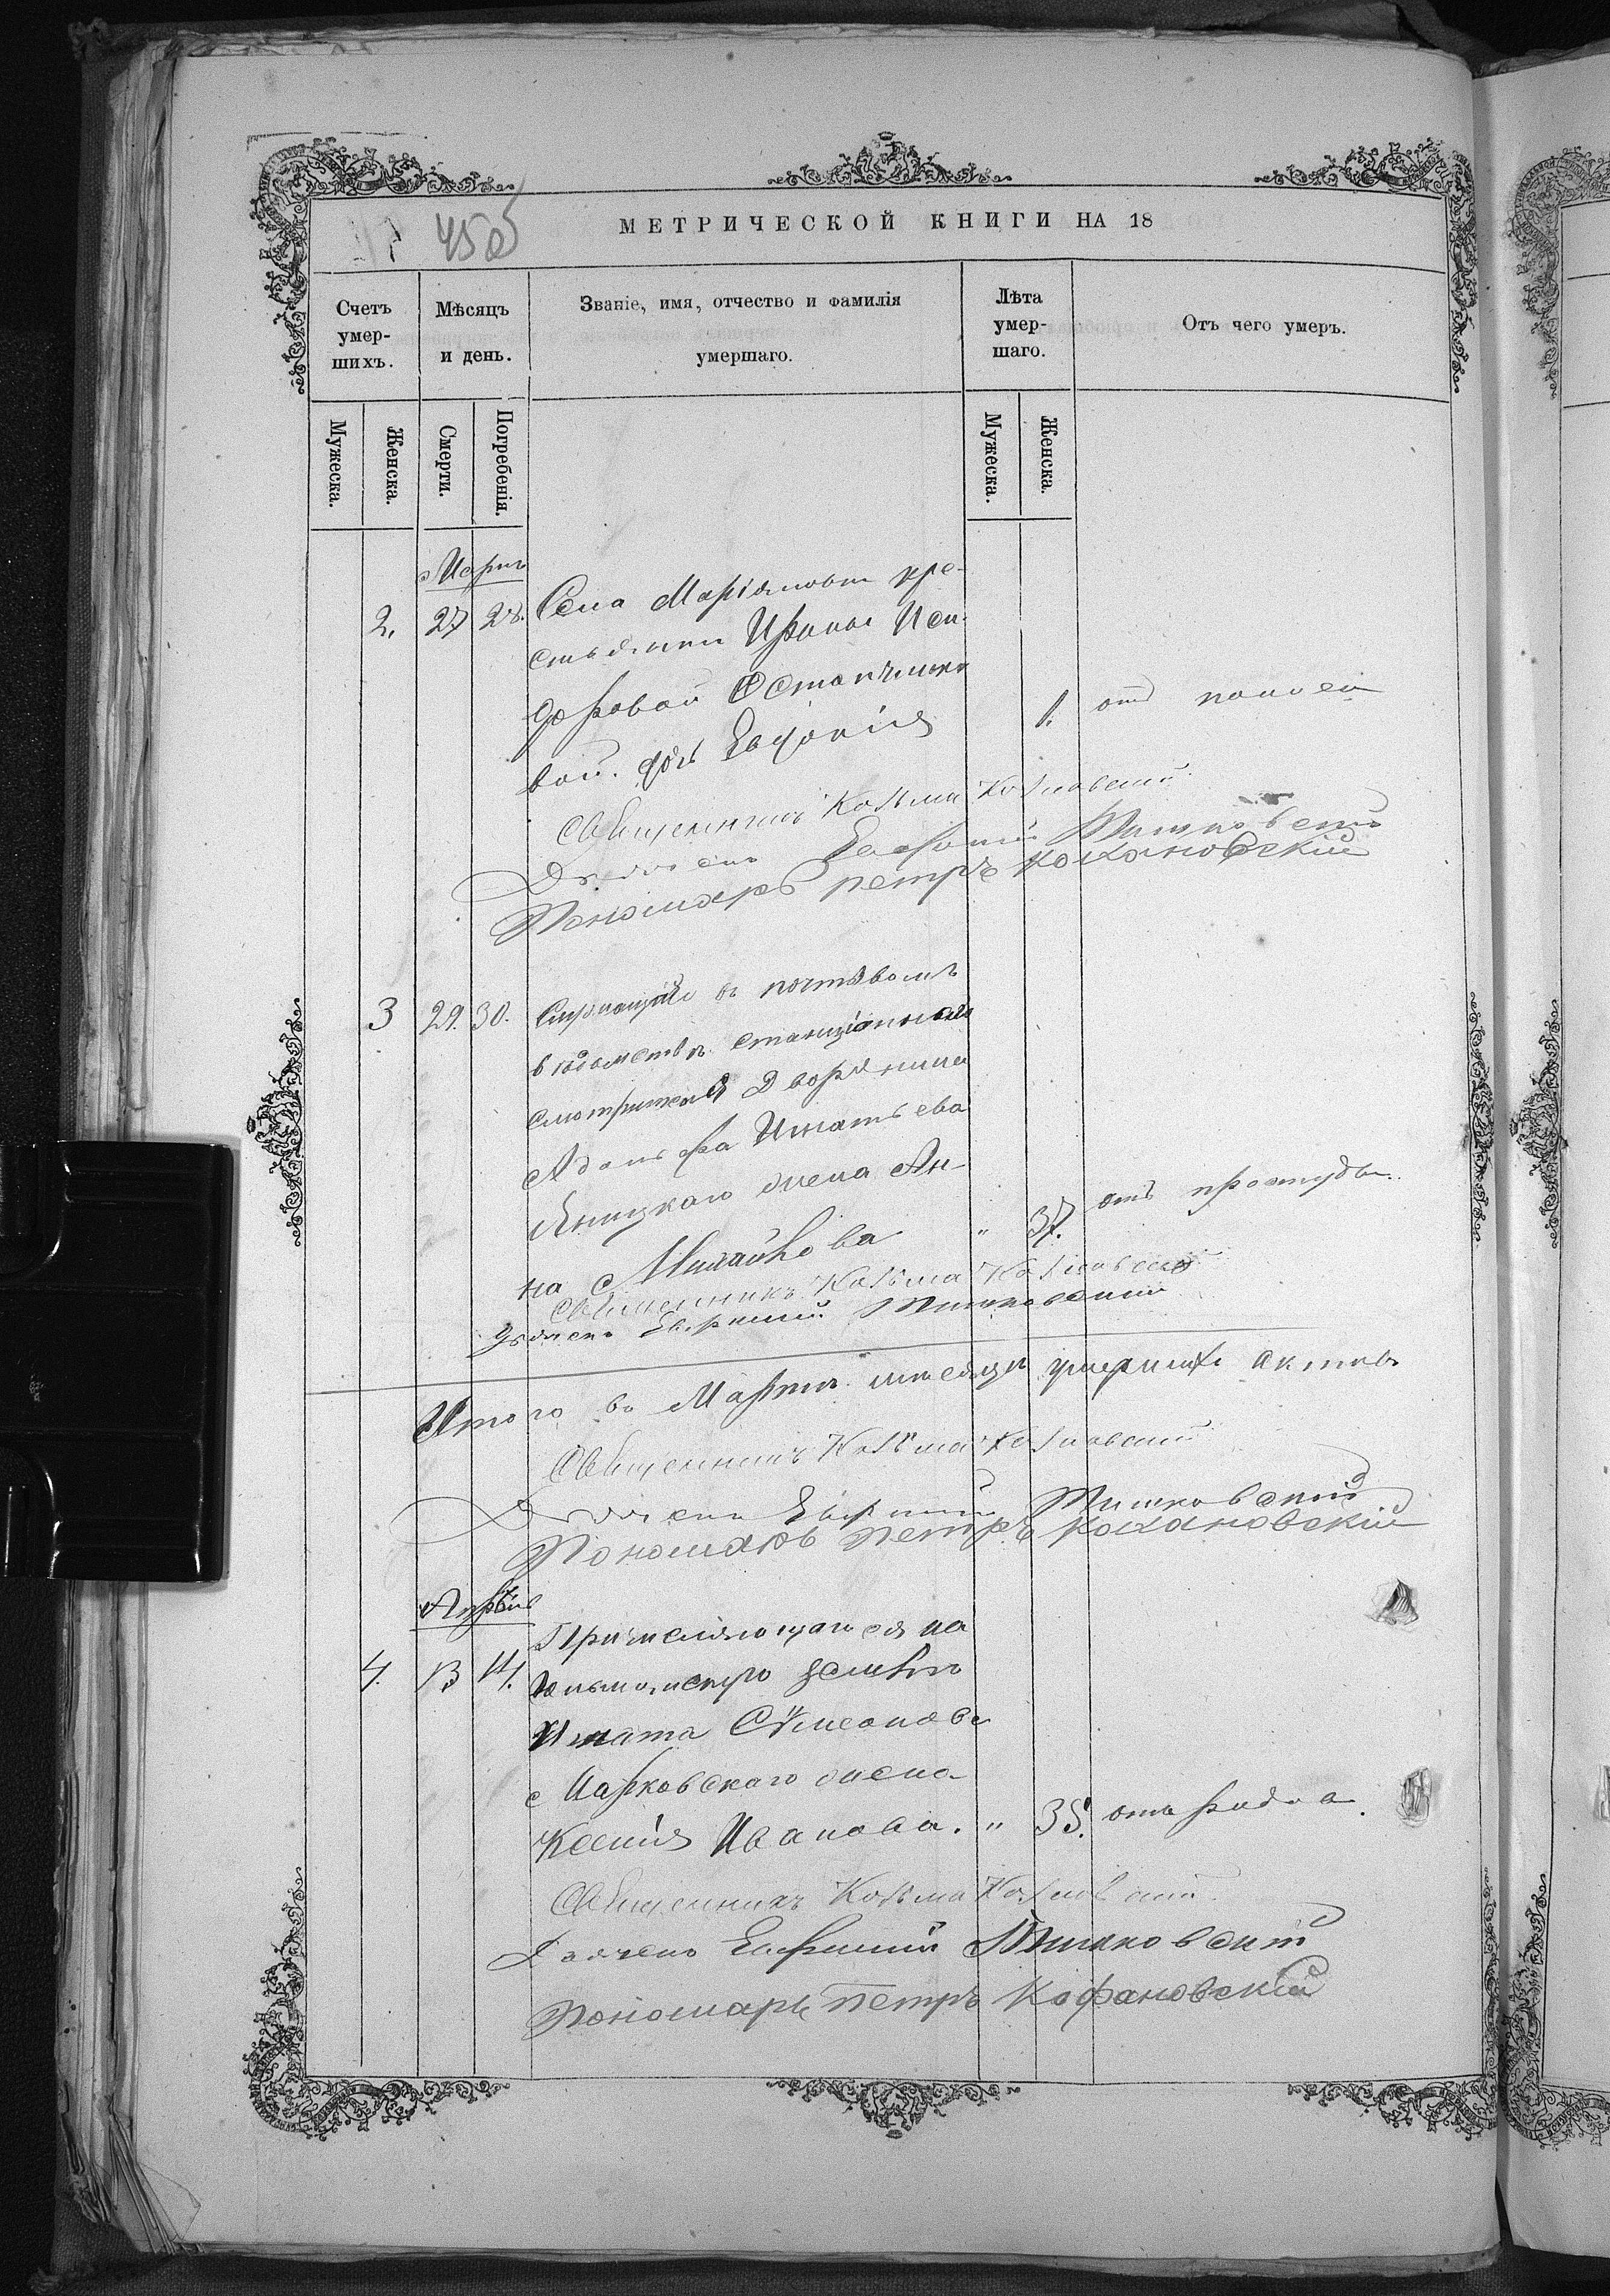 45об
МЕТРИЧЕСКОЙ КНИГИ НА 18
Счетъ умер-шихъ.
Мѣсяцъ и день.
Званіе, имя, отчество и фамилія умершаго.
Лѣта умер-шаго.
Отъ чего умеръ.
Мужеска.
Женска.
Смерти.
Погребенія.
Мужеска.
Женска.
Мартъ
2. 27 28. Села Маріямовки кре-
стьянки Ирины Иси-
доровой
вой. дочь Евдокія 1. отъ
Священникъ Козьма Козловскій
Дьячекъ Евфимій Тишковскій
Пономарь Петръ Кохановскій
3 29. 30. Служащаго въ почтовомъ
вѣдомствѣ станціоннаго
смотрителя Дворянина
Адольфа Игнатьева
Яницкаго жена Ан-
на Михайлова " 37. отъ простуды.
Священникъ Козьма Козловскій
Дьячекъ Евфимій Тишковскій
Итого въ Мартѣ мѣсяцѣ умершихъ актовъ
Священникъ Козьма Козловскій
Дьячекъ Евфимій Тишковскій
Пономарь Петръ Кохановскій
Апрѣль
4. 13 14. Причисляющагося на
землю
Игната Сѵмеонова
Марковскаго жена
Ксенія Иванова. " 35. отъ родов.
Священникъ Козьма Козловскій.
Дьячекъ Евфимій Тишковскій
Пономарь Петръ Кофановскій